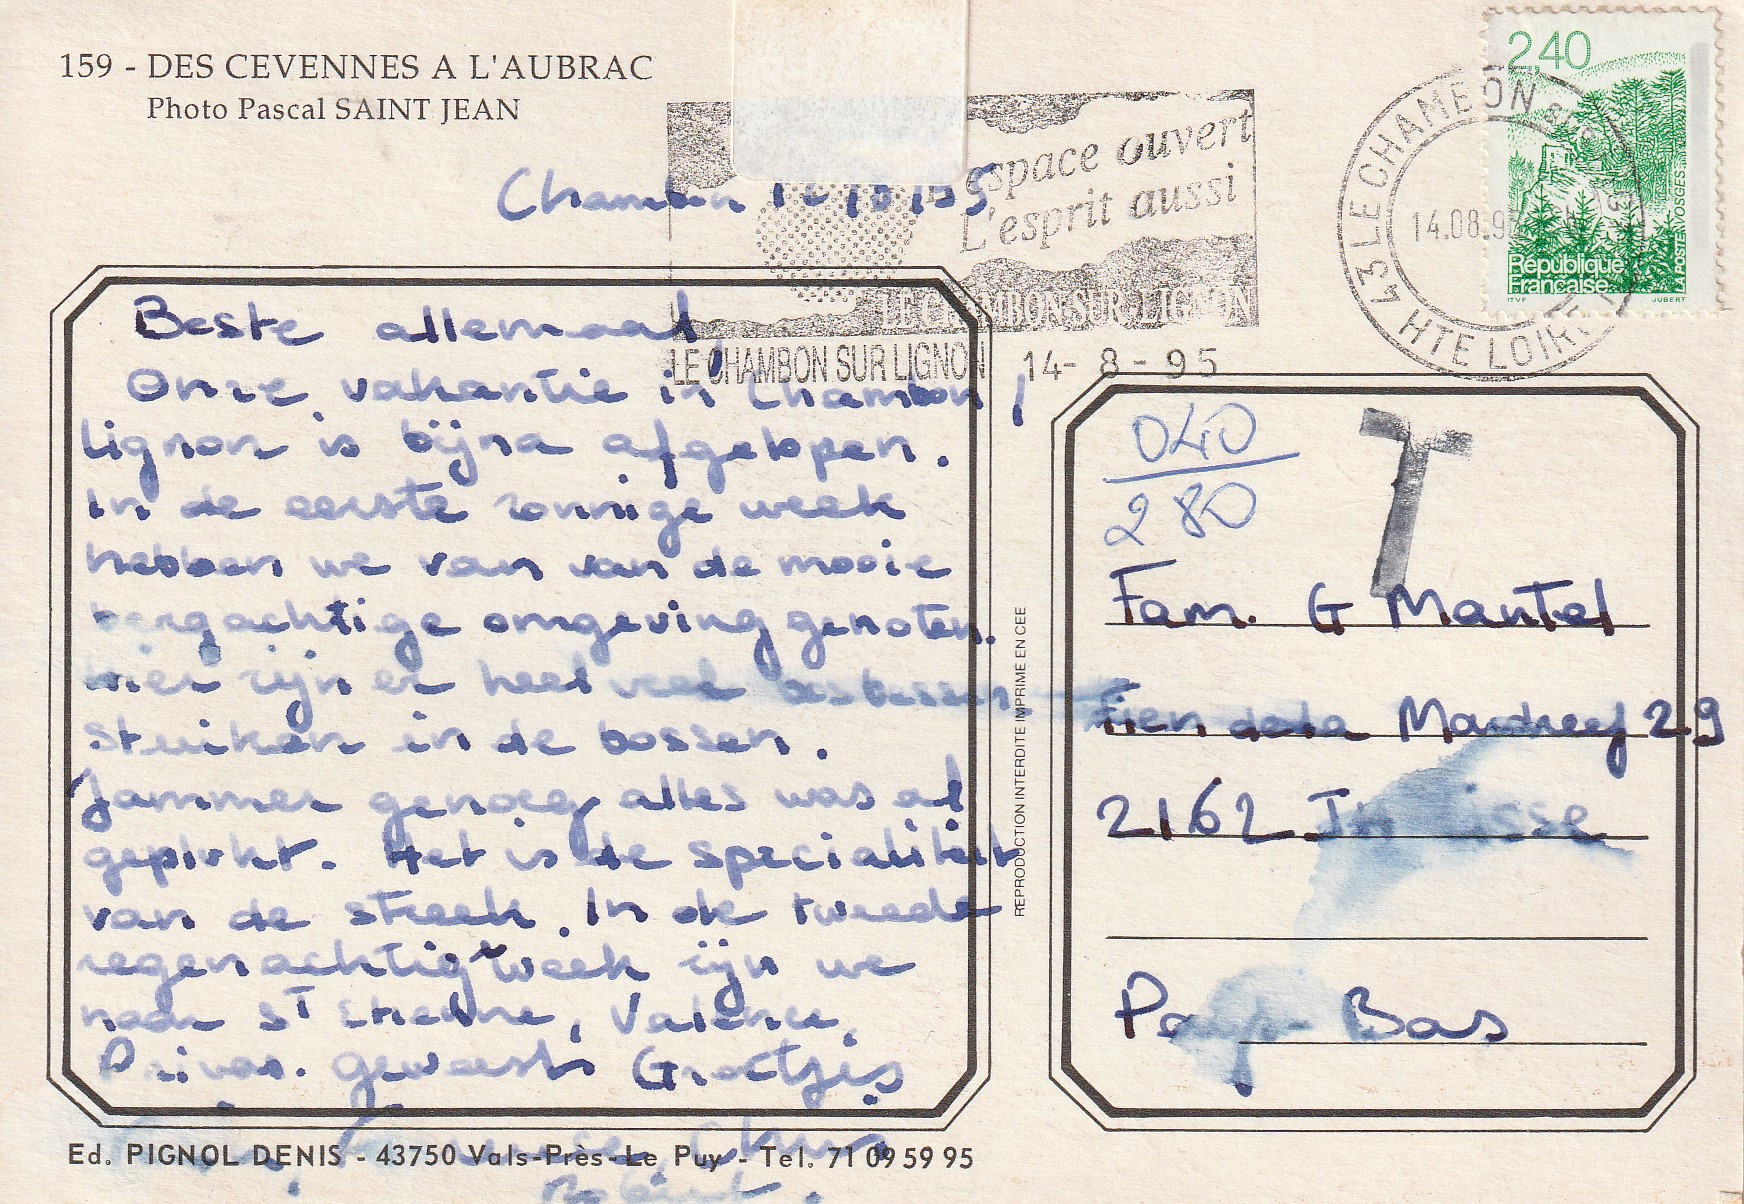 159 - DES CEVENNES A L'AUBRAC
Photo Pascal SAINT JEAN
Chambon /8/95
espace ouvert
L'esprit aussi
LE CHAMBON-SUR-LIGNON
LE CHAMBON SUR LIGNON 14-8-95
43 LE CHAMBON SUR LIGNON
14.08.95
HTE LOIRE
2,40
VOSGES
LA POSTE
République
Française
ITVF JUBERT
Beste allemaal,
Onze vakantie in Chambon /
Lignon is bijna afgelopen.
In de eerste zonnige week
hebben we van van de mooie
bergachtige omgeving genoten.
Hier zijn er heel veel bosbessen
struiken in de bossen.
Jammer genoeg alles was al
geplukt. Het is de specialiteit
van de streek. In de tweede
regenachtig week zijn we
naar St Etienne, Valence,
Privas. geweest. Groetjes
040
280
T
Fam. G Mantel
29
2162
Pays-Bas
REPRODUCTION INTERDITE IMPRIME EN CEE
Ed. PIGNOL DENIS - 43750 Vals-Près-Le Puy - Tel. 71 09 59 95